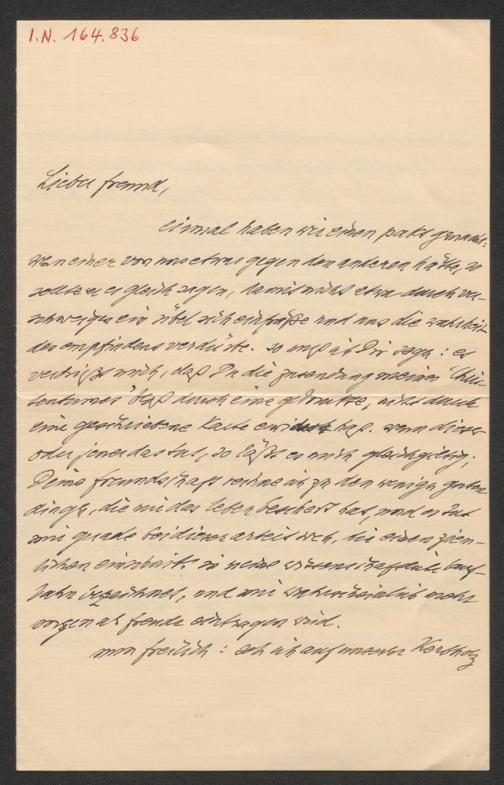 I.N. 164.836
Lieber freund,
einmal haben wir einen pakt gemacht:
wenn einer von uns etwas gegen den anderen hätte, so
sollte er es gleich sagen, damit nicht etwa durch ver-
schweigen ein übel sich einfräße und uns die wahrheit
des empfindens verdürbe. so muß ich Dir sagen: es
verdrießt mich, daß Du die zusendung meiner
bloß durch eine gedruckte, nicht durch
eine geschriebene Karte erwidert hast. wenn dieser
oder jener das tut, so läßt es mich gleichgültig;
Deine freundschaft rechne ich zu den wenigen guten
dingen, die mir das leben beschert hat, und es tut
mir gerade bei dieser arbeit weh, die einen ziem-
lichen einschnitt in meine wissenschaftliche lauf-
bahn bezeichnet, und mir wahrscheinlich mehr
sorgen als freude eintragen wird.
nun freilich: seh ich auf unserer